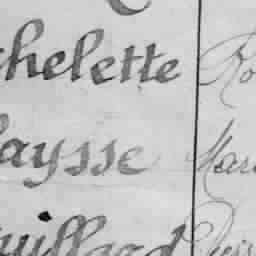 helette Ro
aysse Mar
uillard